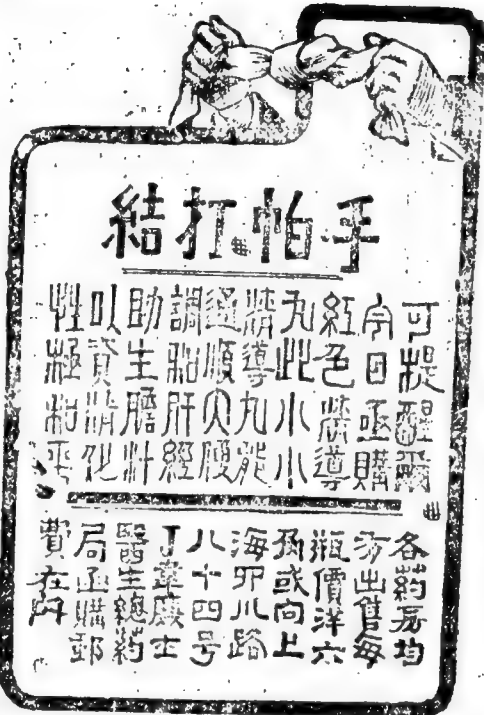 手帕打結
可提醒爾
今日亟購
紅色清導
丸此小小
清導丸能
通順大便
調和肝經
助生膽汁
以資消化
性極和平
各葯房均
有出售每
瓶價洋六
角或向上
海四川路
八十四号
丁韋廉士
醫生總葯
局函購郵
費在內